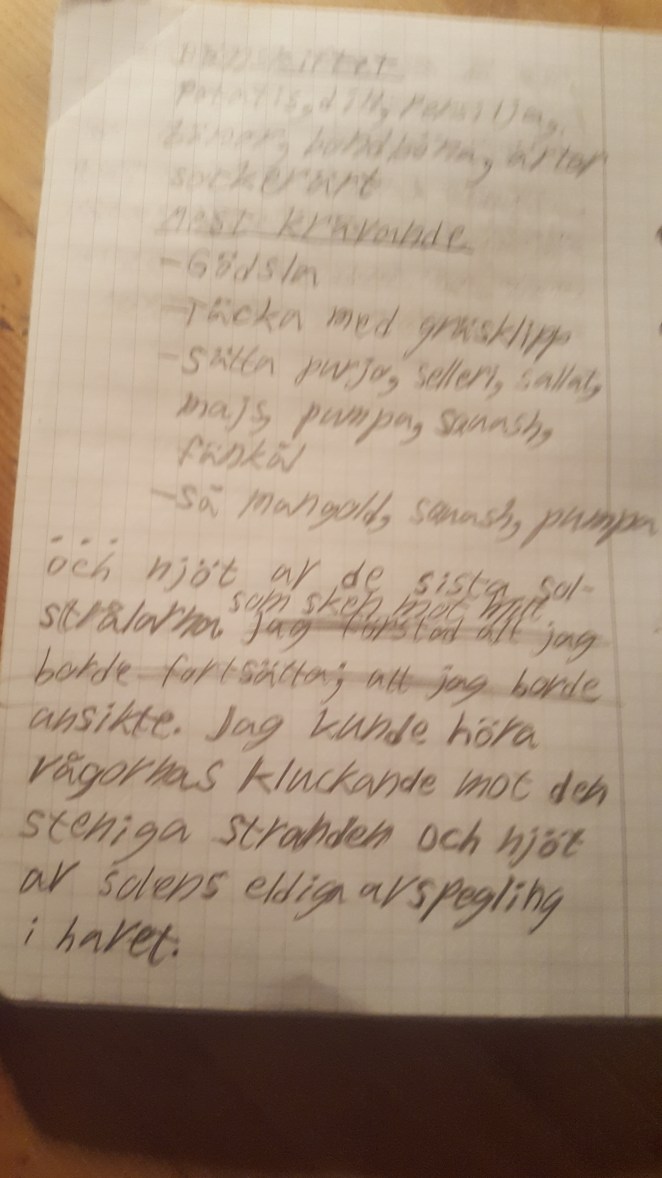 potatis, dill, persilja,
bönor, bondböna, ärtor
sockerärt
mest krävande
-Gödsla
-Täcka med gräsklipp
-Sätta purjo, selleri, sallat,
majs, pumpa, squash,
fänkål
-så mangold, squash, pumpa
...
och njöt av de sista sol-
som sken mot mitt
strålarna. jag förstod att jag
borde fortsätta; att jag borde
ansikte. Jag kunde höra
vågornas kluckande mot den
steniga stranden och njöt
av solens eldiga avspegling
i havet.